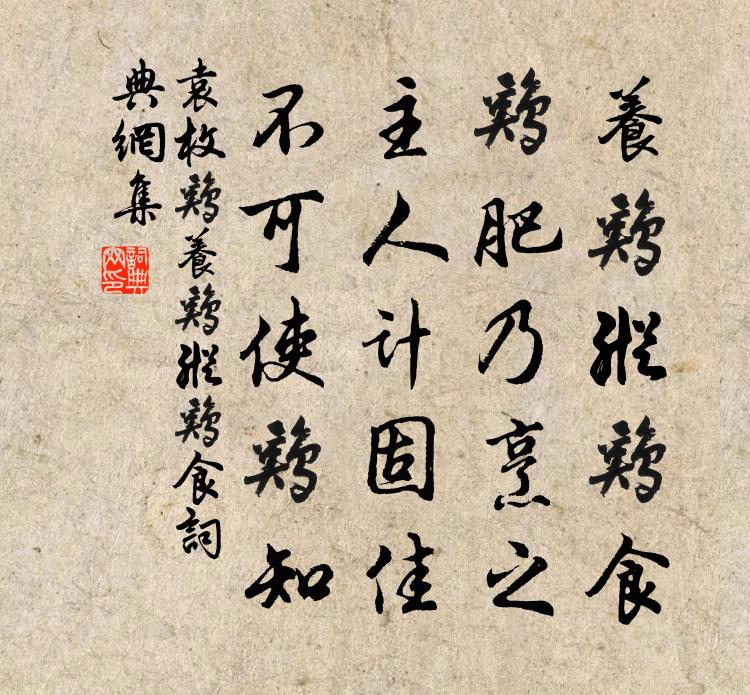 養鷄縱鷄食
鷄肥乃烹之
主人计固佳
不可使鷄知
袁枚鷄養鷄縱鷄食詞
典網集
詞典
网印